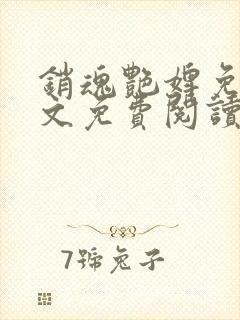 銷魂艷婢免
文免費閱讀
7號兔子